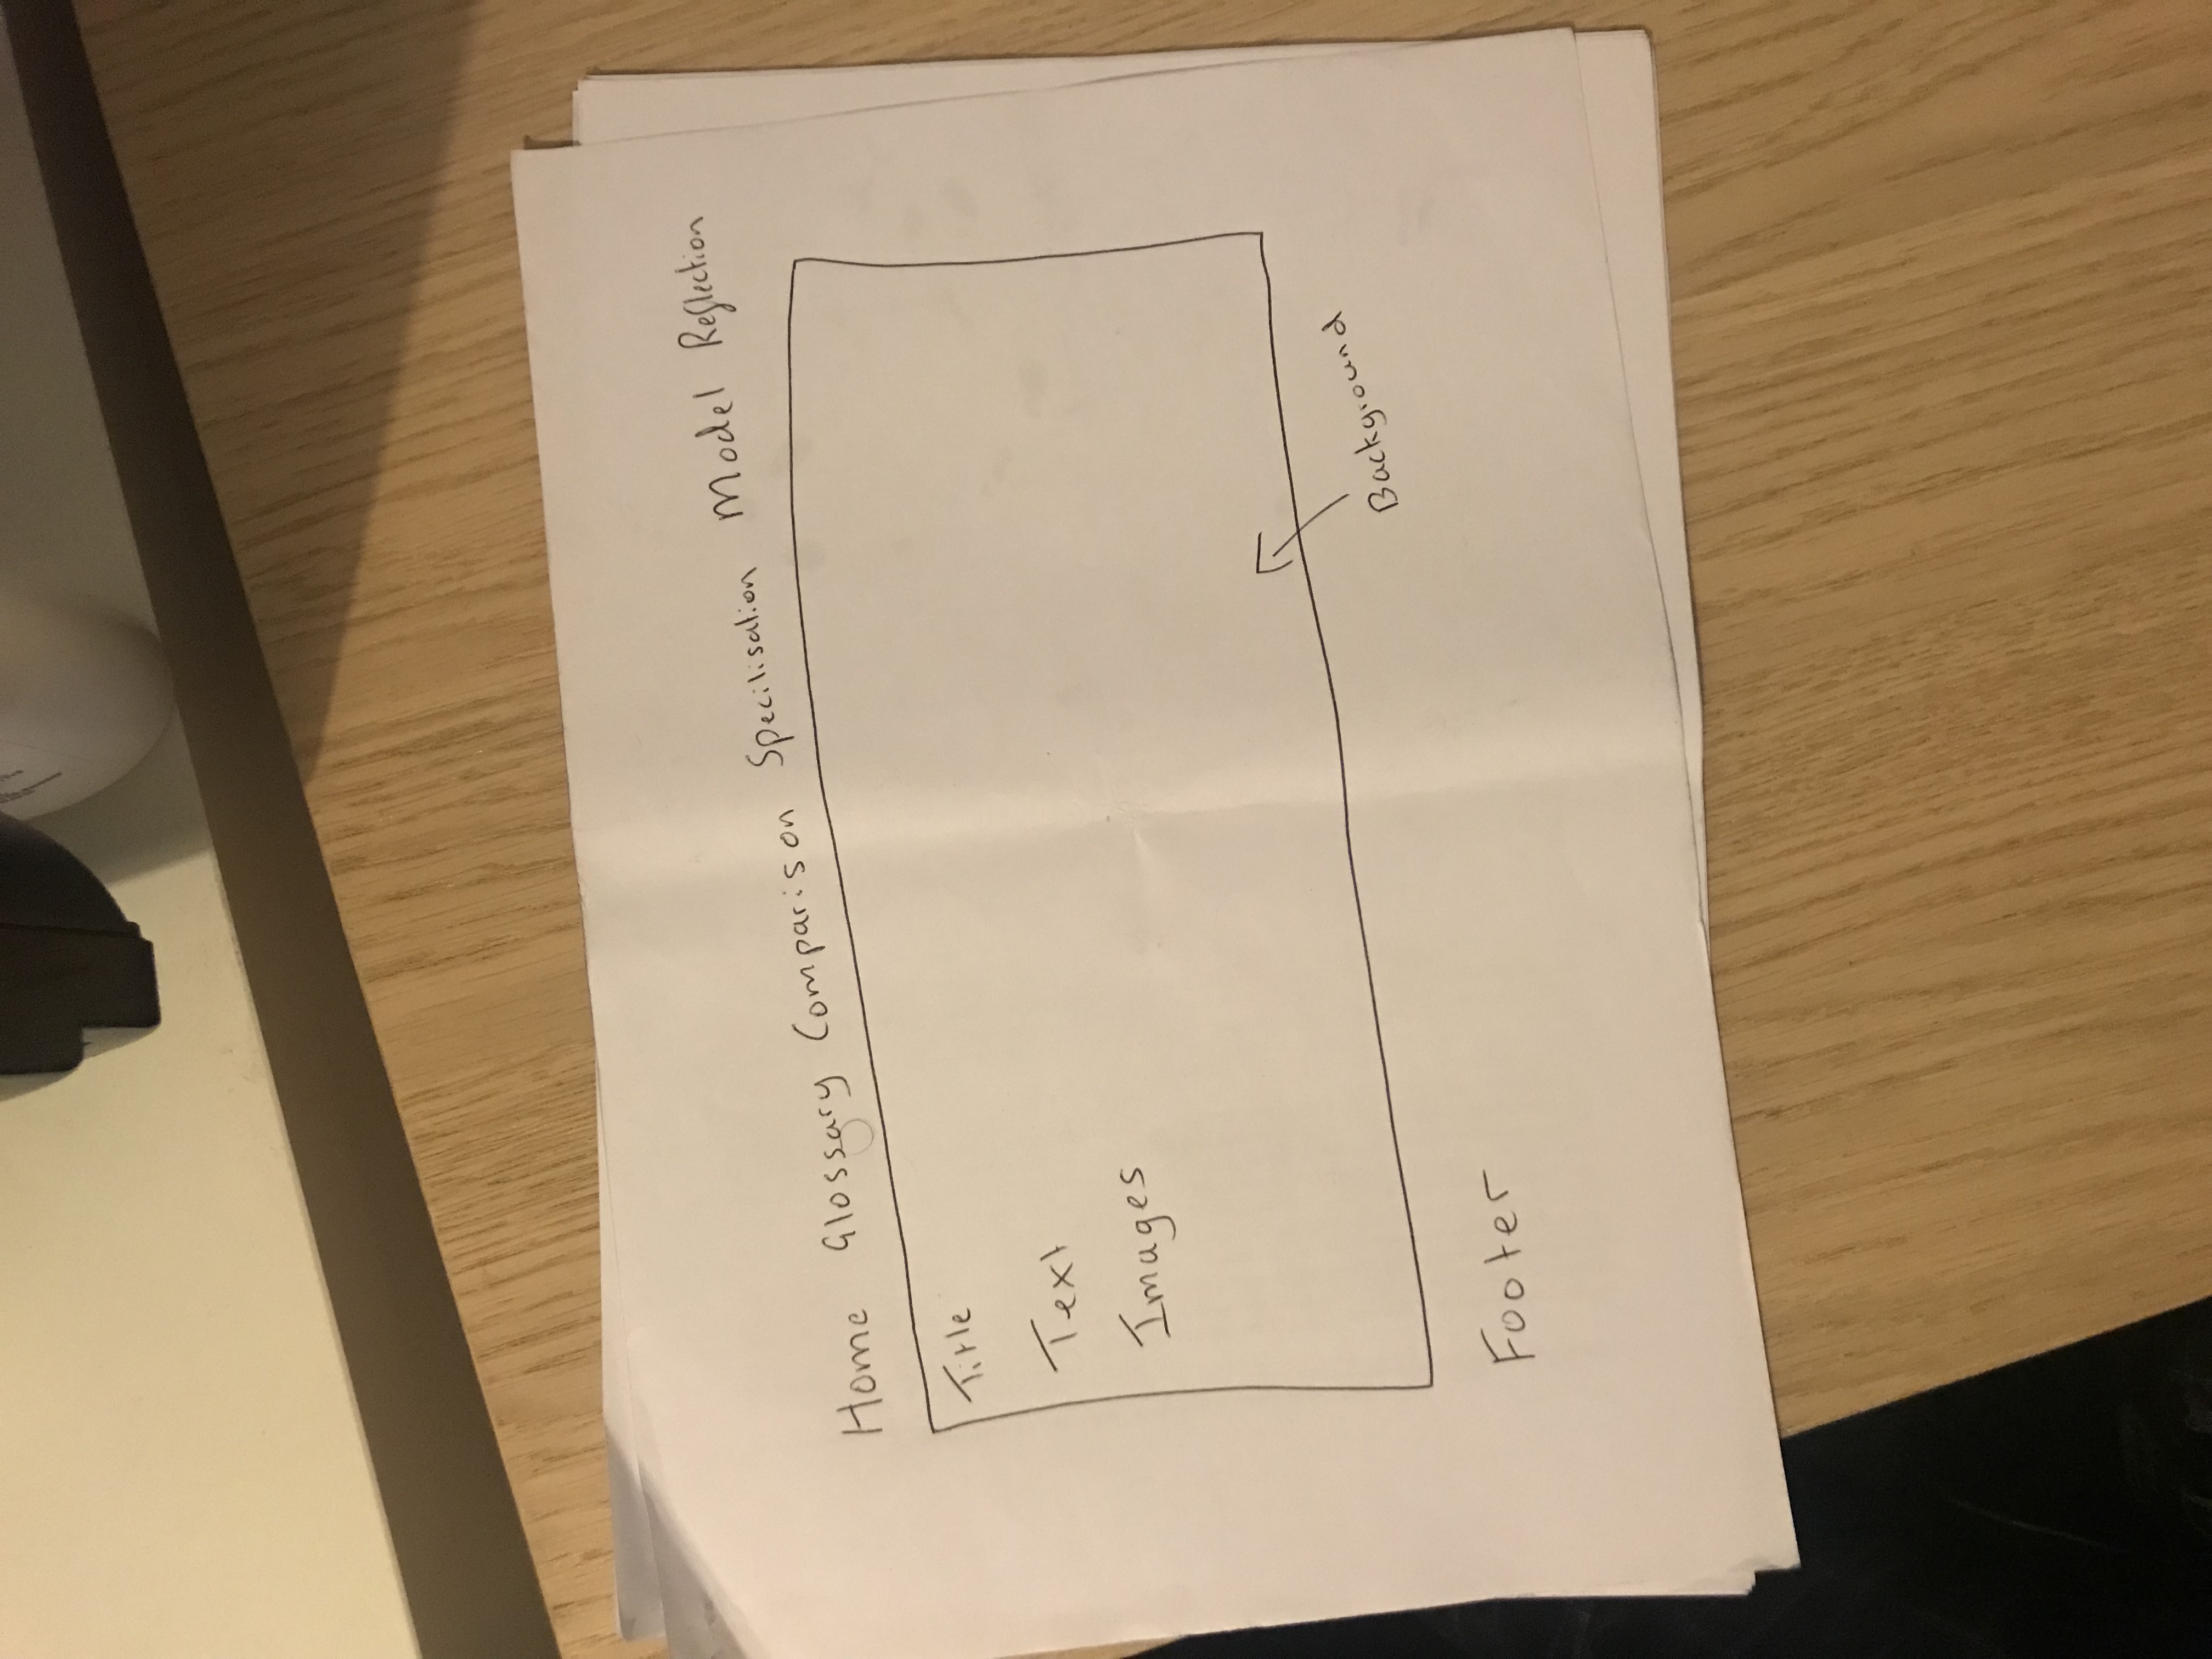 Home Glossary Comparison Specilisation Model Reflection
Title
Text
Images
Background
Footer